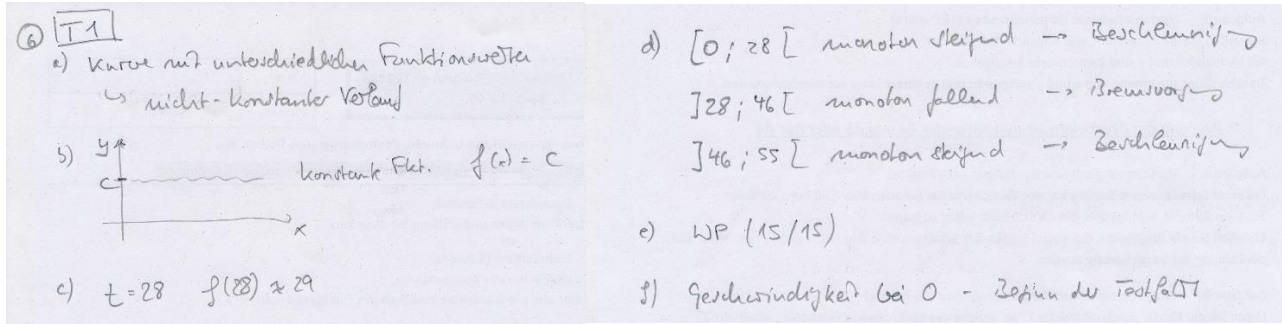 ⑥ T1
a) Kurve mit unterschiedlichen Funktionswerten
↳ nicht-konstanter Verlauf
b) y
c
konstante Fkt. f(x) = c
x
c) t=28 f(28) ≈ 29
d) [0; 28[ monoton steigend → Beschleunigung
]28; 46[ monoton fallend → Bremsvorgang
]46; 55[ monoton steigend → Beschleunigung
e) WP (15/15)
f) Geschwindigkeit bei 0 - Beginn der Testfahrt